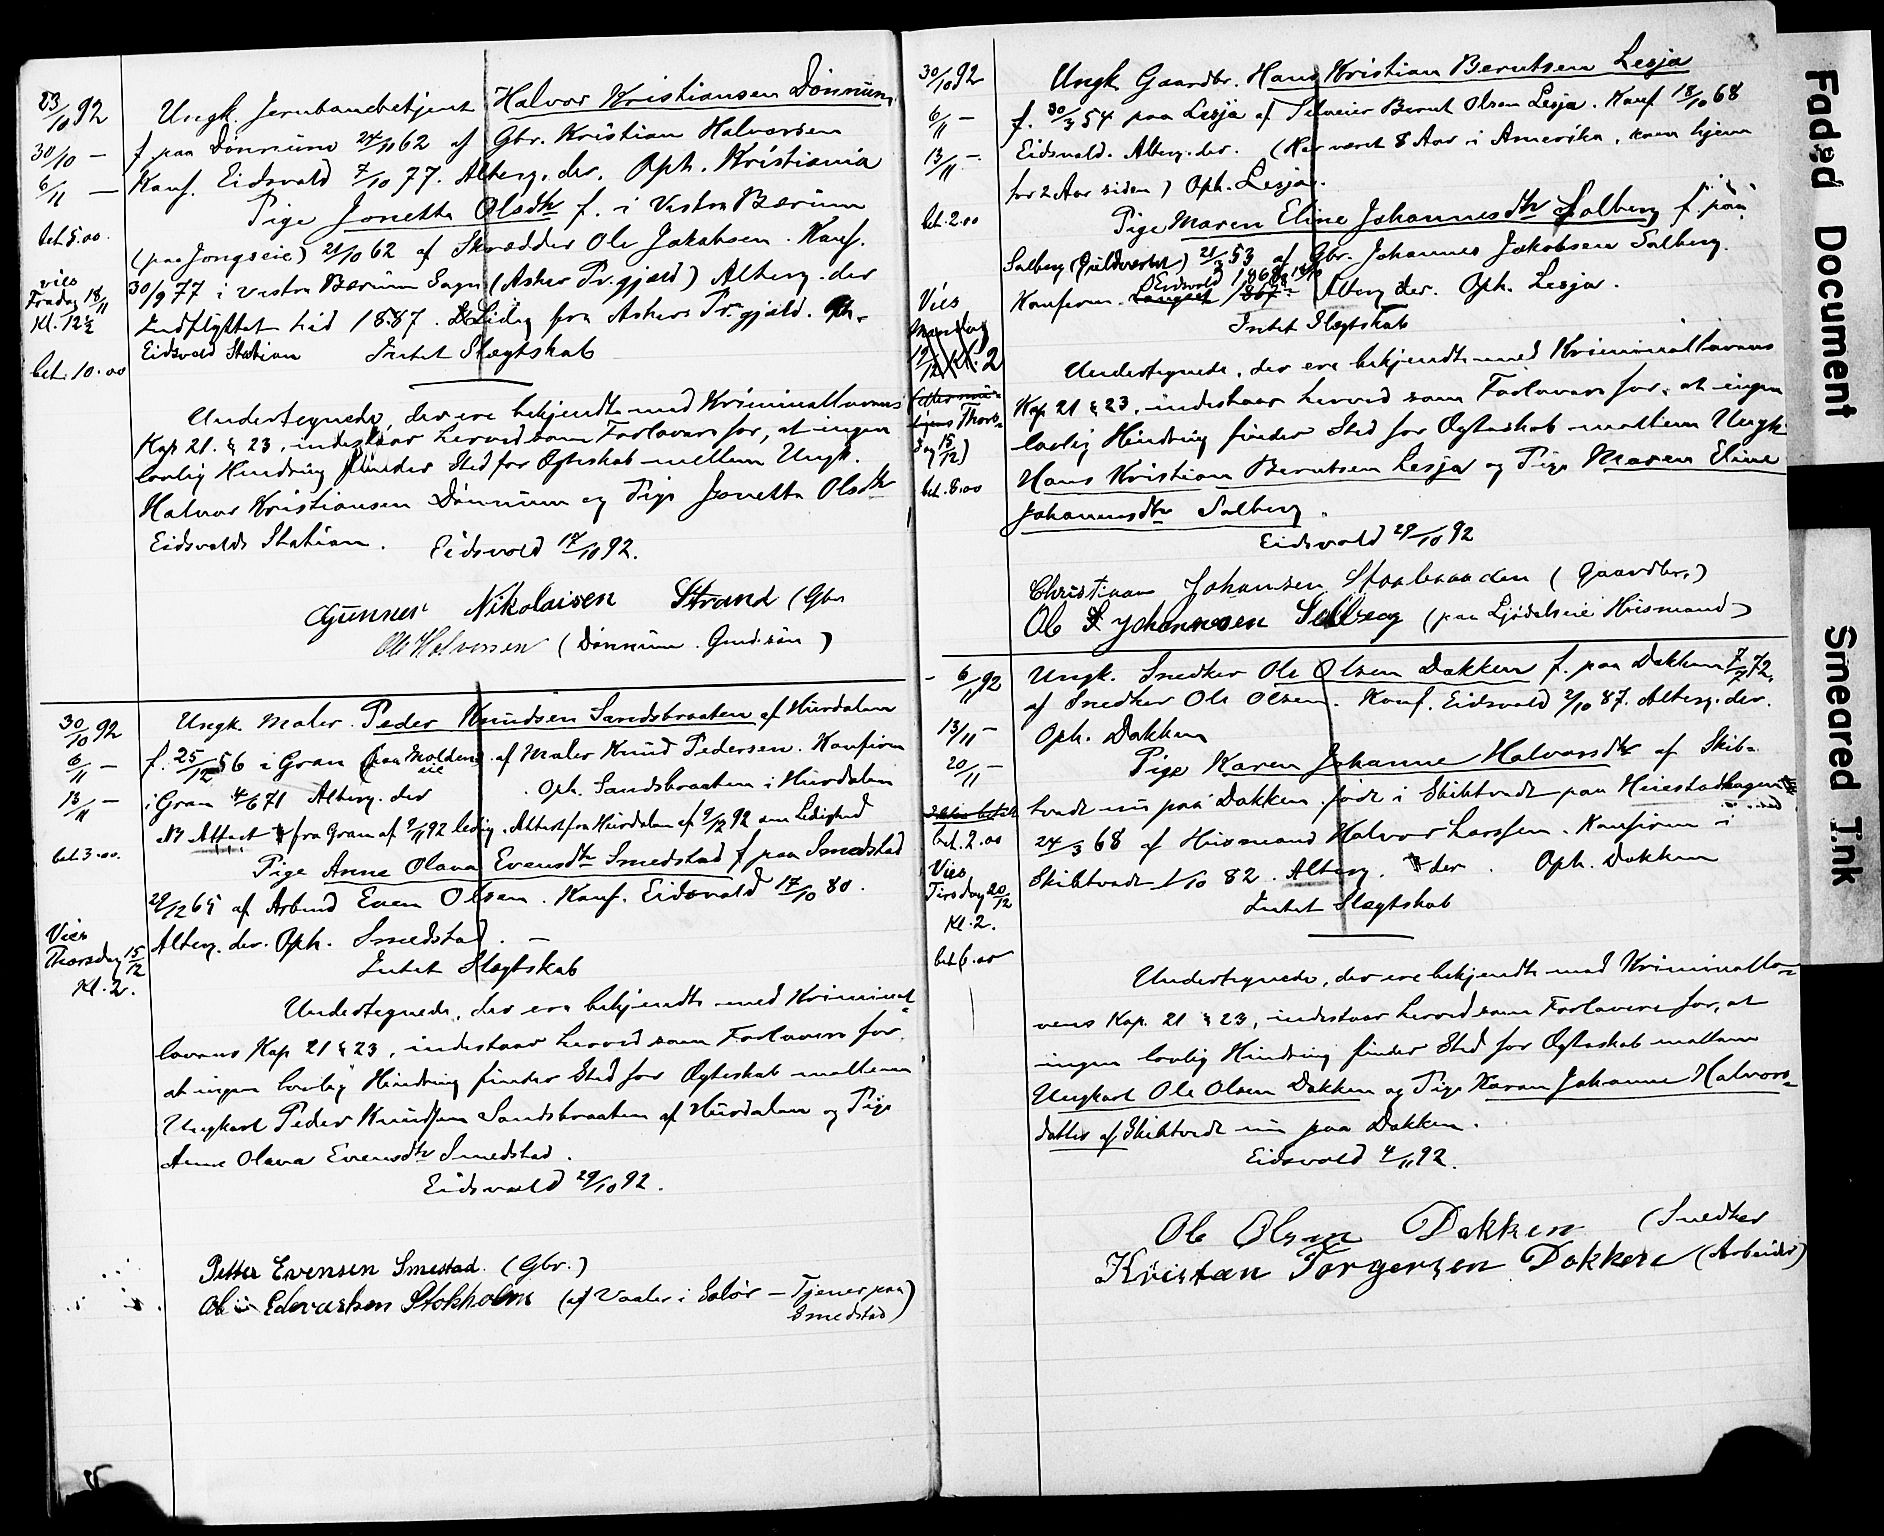 23/10 92
30/10 —
6/11 —
bet. 5.00.
vies
Fredag 18/11
Kl. 12½
bet. 10.00
Ungk. Jernbanebetjent Halvor Kristiansen Dönnum
f. paa Dönnum 24/11 62 af Gbr. Kristian Halvorsen
Konf. Eidsvold 7/10 77. Altberg. der. Oph. Kristiania
Pige Jonette Olsdtr f. i Vestre Bærum
(paa Jongseie) 21/10 62 af Skrædder Ole Jakobsen. Konf.
30/9 77 i Vestre Bærum Sogn (Asker Pr.gjæld) Altberg. der
Indflyttet hid 1887. Ledig fra Askers Pr.gjæld. Oph.
Eidsvold Station Intet Slægtskab
Undertegnede, der ere bekjendte med Kriminallovens
Kap 21. § 23, indestaar herved som Forlovere for, at ingen
lovlig Hindring finder Sted for Ægteskab mellem Ungk.
Halvor Kristiansen Dönnum og Pige Jonette Olsdtr
Eidsvolds Station. Eidsvold 17/10 92.
Gunner Nikolaisen Strand (Gbr
Ole Halvorsen (Dönnum. Grd.søn)
30/10 92
6/11 —
13/11 —
bet. 3.00.
Vies
Thorsdag 15/12
Kl. 2.
Ungk. Maler. Peder Knudsen Sandsbraaten af Hurdalen
f. 25/12 56 i Gran (paa Moldens eie af Maler Knud Pedersen. Konfirm
i Gran 4/6 71 Altberg. der. Oph. Sandsbraaten i Hurdalen
NB Attest fra Gran af 9/11 92 ledig. Attest fra Hurdalen af 9/12 92 om Ledighed
Pige Anne Olava Evensdtr Smedstad f. paa Smedstad
29/12 65 af Arbmd Even Olsen. Konf. Eidsvold 17/10 80.
Altberg. der. Oph. Smedstad. —
Intet Slægtskab
Undertegnede, der ere bekjendte med Kriminal-
lovens Kap 21 § 23, indestaar herved som Forlovere for,
at ingen lovlig Hindring finder Sted for Ægteskab mellem
Ungkarl Peder Knudsen Sandsbraaten af Hurdalen og Pige
Anne Olava Evensdtr Smedstad.
Eidsvold 29/10 92.
Petter Evensen Smestad. (Gbr.)
Ole Edvarsen Stokholm (af Vaaler i Solör — Tjener paa
Smedstad)
30/10 92
6/11 —
13/11 —.
bet. 2.00
Vies
Mandag
19/12 Kl. 2
Thors-
dag 15/12)
bet. 8.00
Ungk Gaardbr. Hans Kristian Berntsen Lesja
f. 30/3 54 paa Lesja af Bernt Olsen Lesja. Konf 18/10 68
Eidsvold. Altberg. der. (Har været 8 Aar i Amerika, kom hjem
for 2 Aar siden) Oph. Lesja.
Pige Maren Eline Johannesdtr Solberg f. paa
Solberg (Guldværket) 21/3 53 af Gbr. Johannes Jakobsen Solberg.
Eidsvold 1868
Konfirm. Langset 1867. Altberg der. Oph. Lesja.
Intet Slægtskab
Undertegnede, der ere bekjendte med Kriminallovens
Kap 21 § 23, indestaar herved som Forlovere for, at ingen
lovlig Hindring finder Sted for Ægteskab mellem Ungk
Hans Kristian Berntsen Lesja og Pige Maren Eline
Johannesdtr Solberg.
Eidsvold 29/10 92
Christian Johansen (Gaardbr.)
Ole Johannesen Solberg (paa Ljødalseie Husmand)
6/11 92
13/11 —
20/11 —
bet. 2.00
Vies
Tirsdag 20/12
Kl. 2.
bet 6.00
Ungk. Snedker Ole Olsen Dokken f. paa Dokken 7/7 72,
af Snedker Ole Olsen. Konf. Eidsvold 2/10 87. Altberg. der.
Oph. Dokken
Pige Karen Johanne Halvorsdtr af Skib-
tvedt nu paa Dokken, født i Skibtvedt paa Heiestadhagen
24/3 68 af Husmand Halvor Larssen. Konfirm i
Skibtvedt 1/10 82. Altberg. der. Oph. Dokken
Intet Slægtskab
Undertegnede, der ere bekjendte med Kriminallo-
vens Kap. 21 § 23, indestaar herved som Forlovere for, at
ingen lovlig Hindring finder Sted for Ægteskab mellem
Ungkarl Ole Olsen Dokken og Pige Karen Johanne Halvors-
datter af Skibtvedt nu paa Dokken.
Eidsvold 4/11 92.
Ole Olsen Dokken (Snedker
Kristan Torgersen Dokken (Arbeider)
Faded Document
Smeared Ink